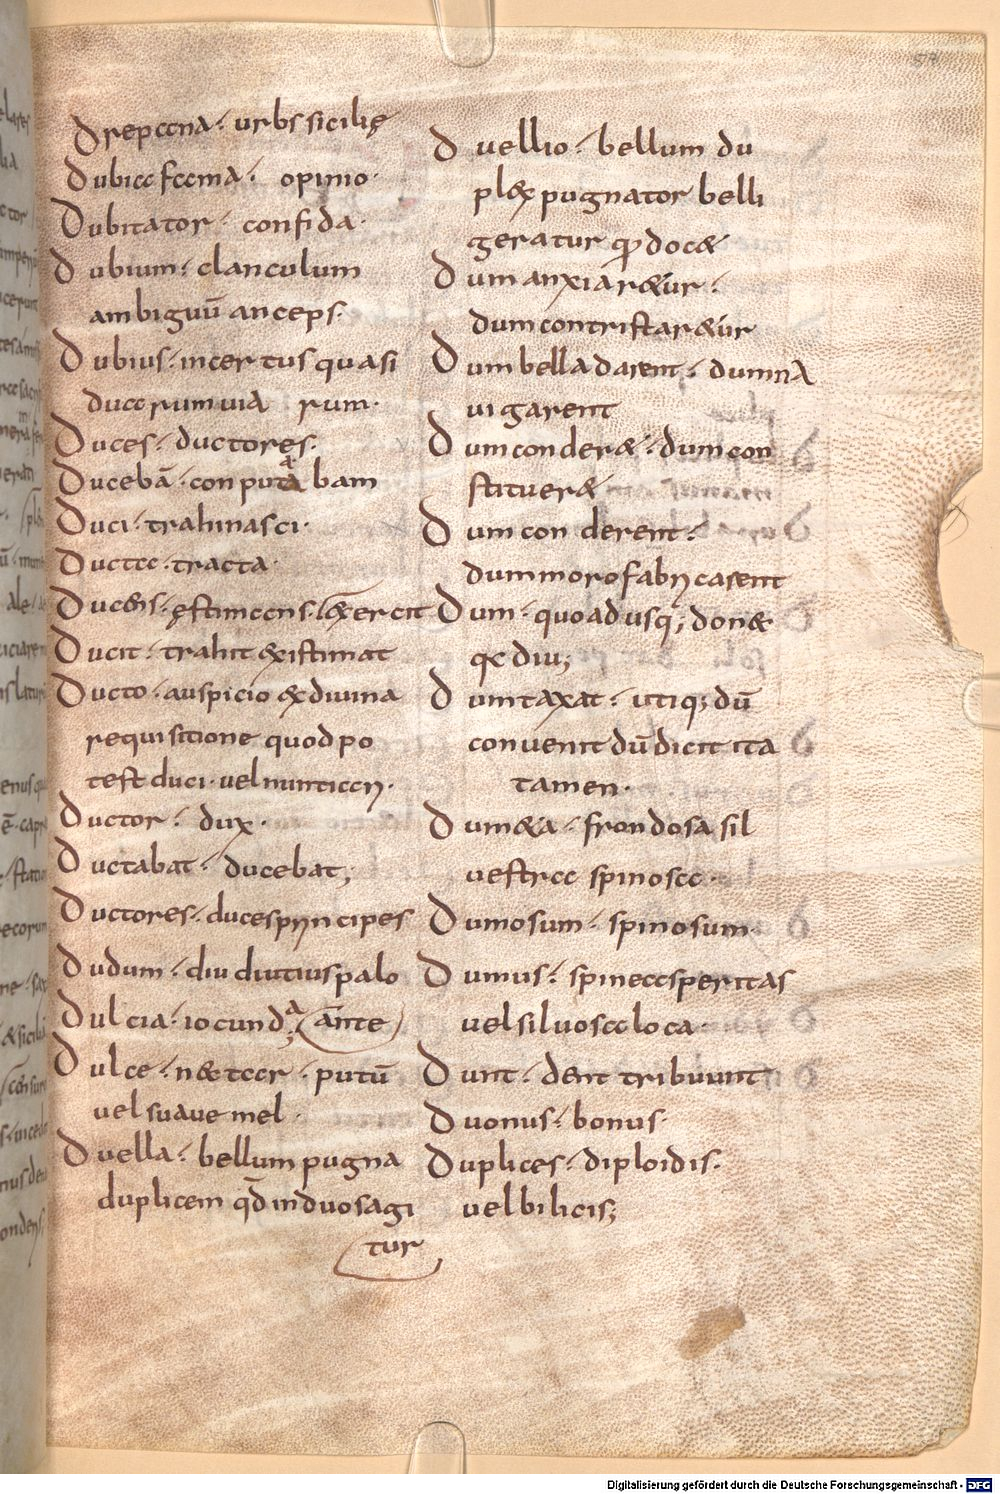 Drepana· urbs sicilię
Dubia fama· opinio·
Dubitator· confida·
Dubium· clanculum
ambiguū anceps·
Dubius· incertus quasi
duarum uia rum·
Duces· ductores·
Ducebā· conputa bam
Duci· trahi nasci·
Ducta· tracta·
Ducit· trahit & existimat
Ducto· auspicio & diuina
requisitione quod po
test duci· uel nuntiari·
Ductor· dux·
Ductabat· ducebat;
Ductores· duces principes
Dudum· diu diutius palo
Dulcia· iocunda; (ante)
Dulce· nectar· putū
uel suaue mel·
Duella· bellum pugna
duplicem qđ in duos agi
tur
Duellio· bellum du
pl&x pugnator belli
geratur doc&
Dum anxiar&ur·
dum contristar&ur
Dum bella darent· dum na
uigarent
Dum conder&· dum con
stituer&
Dum conderent·
dum moro fabricarent
Dum· quo ad usq; don&
diu;
Dum taxat· utiq; dū
conuenit dū dicit ita
tamen·
Dum&a· frondosa sil
uestra spinosa·
Dumosum· spinosum·
Dumus· spinea asperitas
uel siluosa loca·
Dunt· dent tribuunt
Duonus· bonus·
Duplices· diploidis·
uel bilicis;
Digitalisierung gefördert durch die Deutsche Forschungsgemeinschaft - DFG